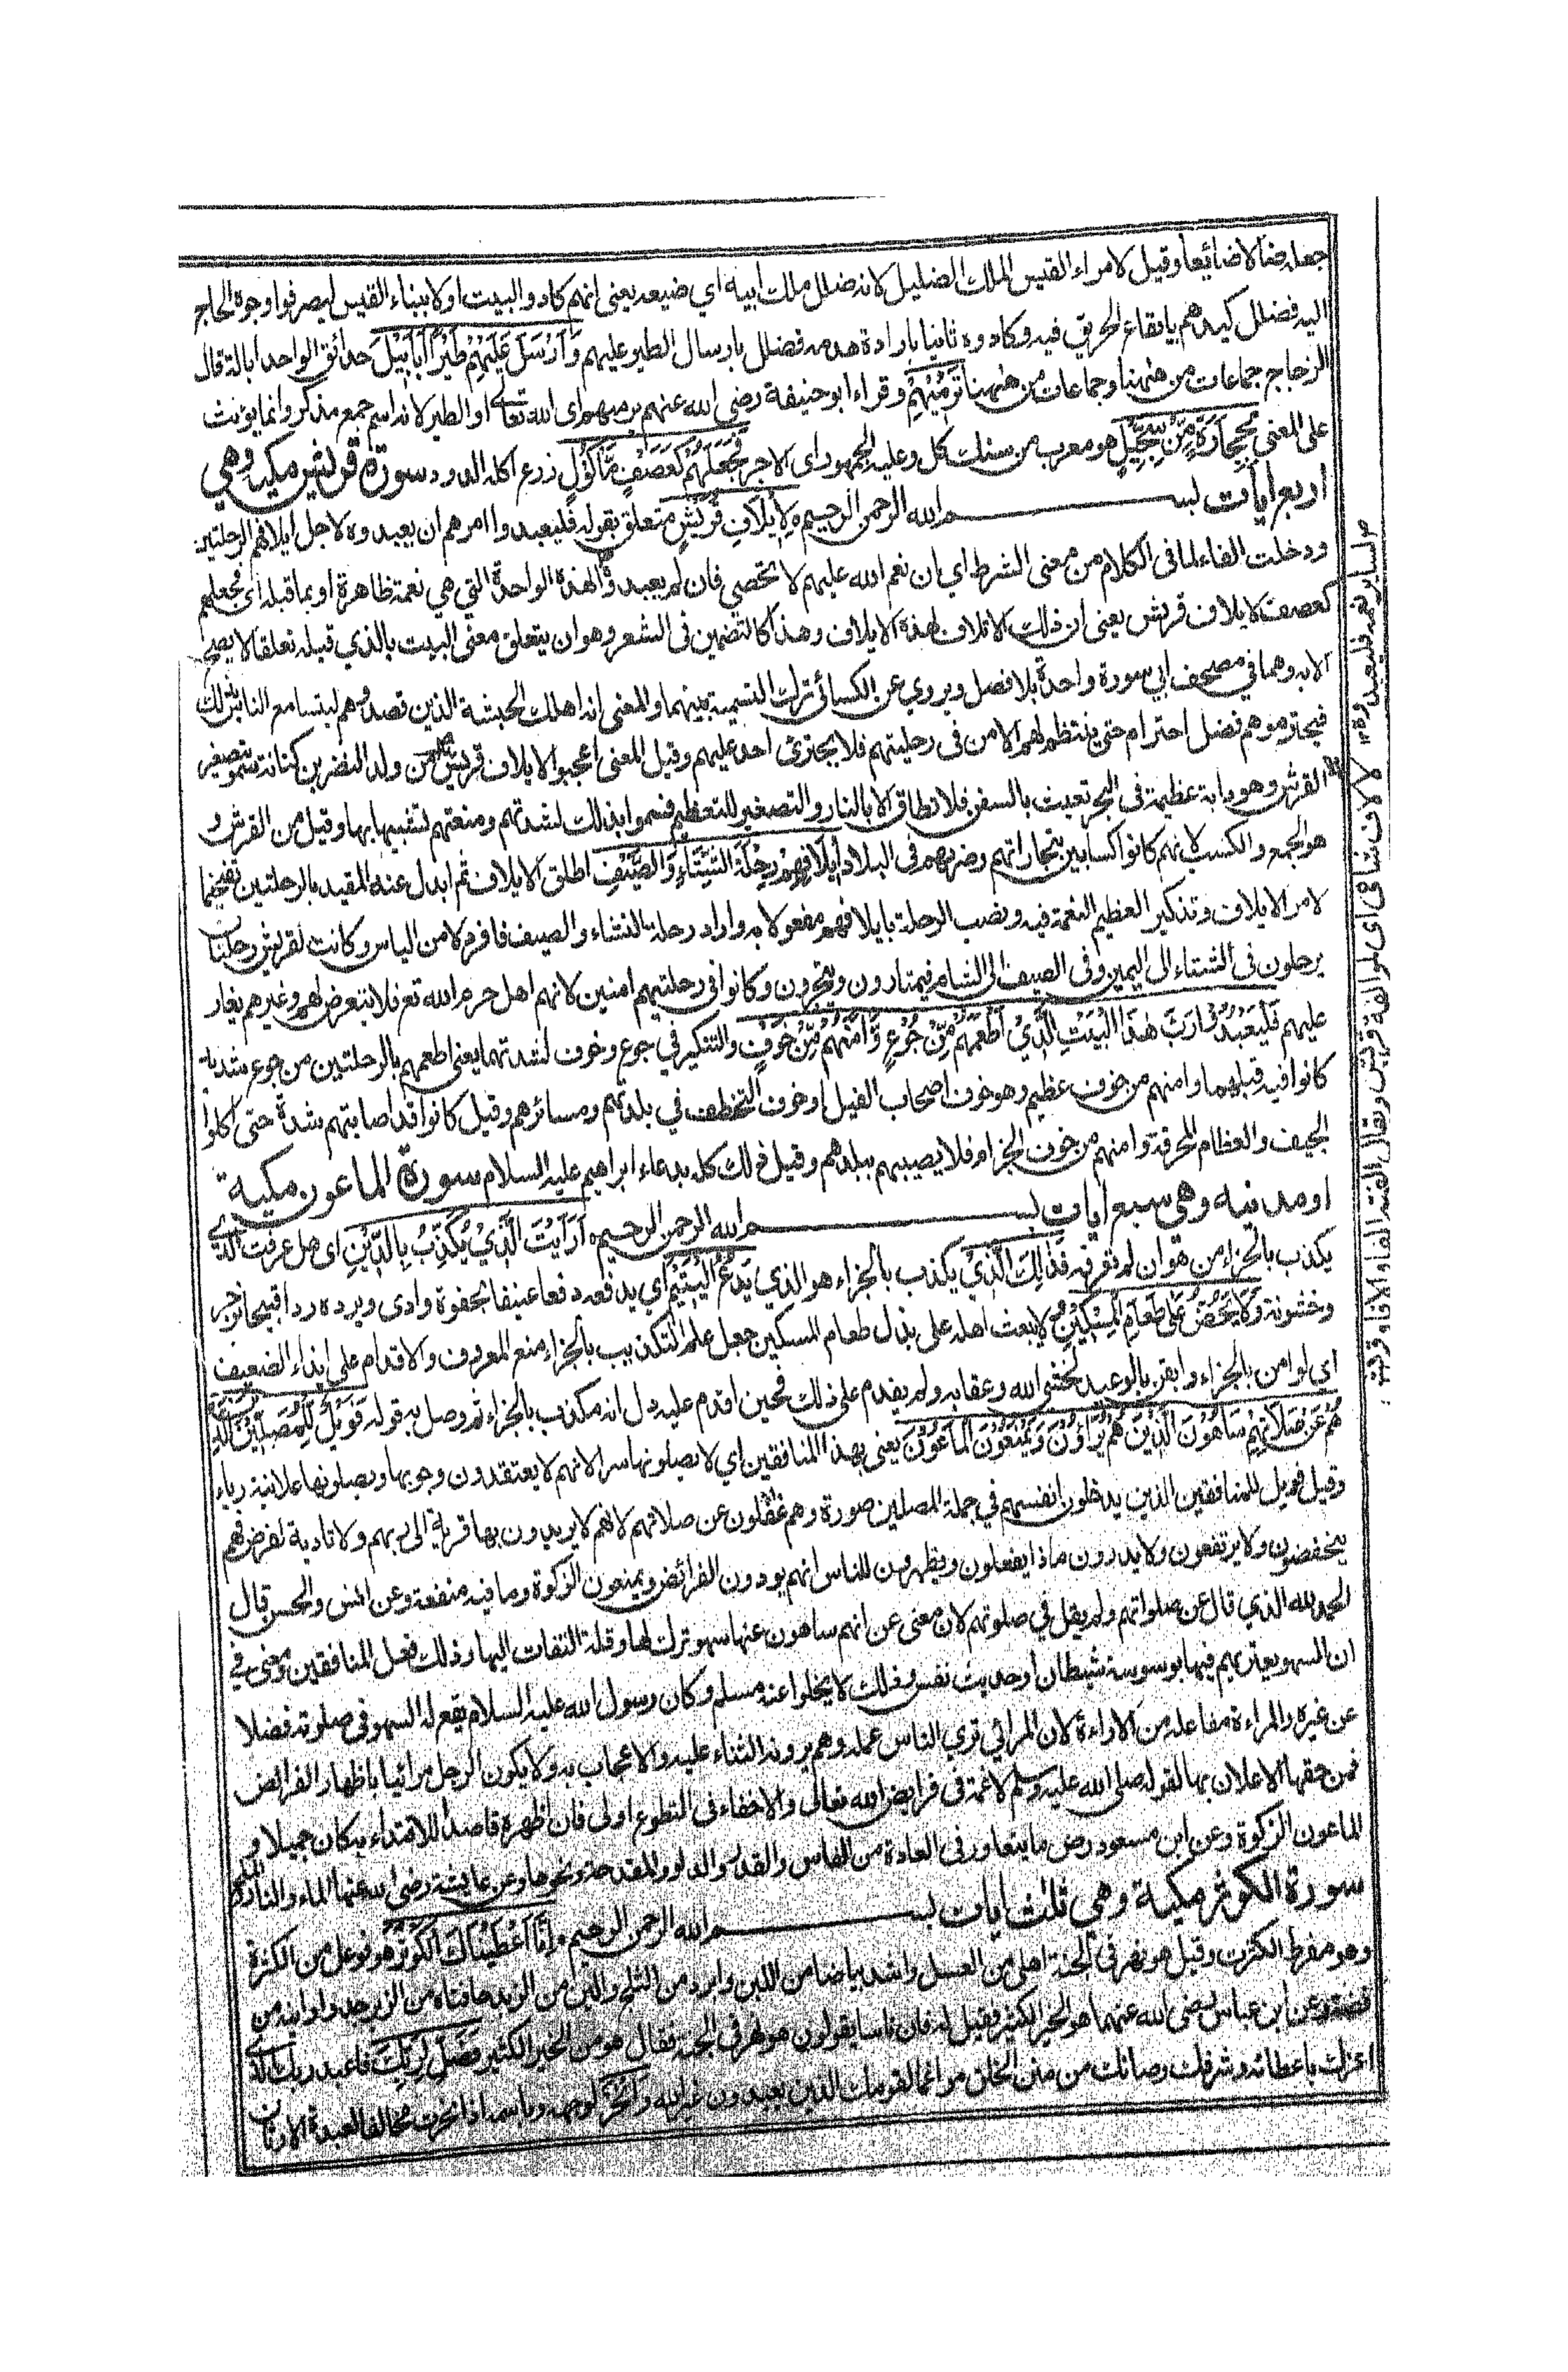 جعله ضالا ضائعا وقيل لامراء القيس الملك الضليل لانه ضلل ملك ابيه اي ضيعه يعنى انهم كادوا البيت اولا ببناء القليس ليصرفوا وجوه الحاج
اليه فضلل كيدهم بايقاع الحريق فيه وكادوه ثانيا بارادة هدمه فضلل بارسال الطير عليهم وَاَرْسَلَ عَلَيْهِمْ طَيْرًا اَبَابِيْلَ حدائق الواحد ابالة قال
الزجاج جماعات من ههنا وجماعات من ههنا تَرْمِيْهِمْ وقراء ابو حنيفة رضي الله عنهم يرميهم اى الله تعالى او الطير لانه اسم جمع مذكر وانما يؤنث
على المعنى بِحِجَارَةٍ مِّنْ سِجِّيْلٍ هو معرب من سنك كل وعليه الجمهور اى الاجر فَجَعَلَهُمْ كَعَصْفٍ مَّاْكُوْلٍ زرع اكله الدود سورة قريش مكية وهي
اربع ايات بسم الله الرحمن الرحيم لِاِيْلَافِ قُرَيْشٍ متعلق بقوله فليعبدوا امرهم ان يعبدوه لاجل ايلافهم الرحلتين
ودخلت الفاء لما فى الكلام من معنى الشرط اي ان نعم الله عليهم لا تحصي فان لم يعبدوه لهذه الواحدة التي هي نعمة ظاهرة او بما قبله اى فجعلهم
كعصف لايلاف قريش يعنى ان ذلك الاتلاف لهذه الايلاف وهذا كالتضمين فى الشعر وهو ان يتعلق معنى البيت بالذي قبله تعلقا لا يصح
الا به وهما في مصحف ابي سورة واحدة بلا فصل ويروي عن الكسائي ترك التسمية بينهما والمعنى انه اهلك الحبشة الذين قصدوهم ليتسامع الناس بذلك
فيحترموهم فضل احترام حتى ينتظم لهم الامن فى رحلتيهم فلا يجترئ احد عليهم وقيل المعنى اعجبوا لايلاف قريش من ولد النضر بن كنانة سموا بتصغير
القرش وهو دابة عظيمة فى البحر تعبث بالسفن فلا تطاق الا بالنار والتصغير للتعظيم فسموا بذلك لشدتهم ومنعتهم تشبيها بها وقيل من القرش و
هو الجمع والكسب لانهم كانوا كسابين بتجاراتهم وضربهم فى البلاد اِيْلَافِهِمْ رِحْلَةَ الشِّتَاءِ وَالصَّيْفِ اطلق الايلاف ثم ابدل عنه المقيد بالرحلتين تفخيما
لامر الايلاف وتذكير العظيم النعمة فيه ونصب الرحلة بايلافهم مفعولا به واراد رحلة الشتاء والصيف فافرد لامن الباس وكانت لقريش رحلتان
يرحلون فى الشتاء الى اليمين وفى الصيف الى الشام فيمتارون ويتجرون وكانوا فى رحلتيهم امنين لانهم اهل حرم الله تع فلا يتعرض لهم وغيرهم يغار
عليهم فَلْيَعْبُدُوْا رَبَّ هٰذَا الْبَيْتِ الَّذِيْ اَطْعَمَهُمْ مِّنْ جُوْعٍ وَّاٰمَنَهُمْ مِّنْ خَوْفٍ والتنكير في جوع وخوف لشدتهما يعنى اطعمهم بالرحلتين من جوع شديد
كانوا فيه قبلهما وامنهم من خوف عظيم وهو خوف اصحاب الفيل او خوف التخطف في بلدهم ومسائرهم وقيل كانوا قد اصابتهم شدة حتى اكلوا
الجيف والعظام المحرقة وامنهم من خوف الجزام فلا يصيبهم ببلدهم وقيل ذلك كله بدعاء ابراهيم عليه السلام سورة الماعون مكية
او مدنية وهى سبع ايات بسم الله الرحمن الرحيم اَرَاَيْتَ الَّذِيْ يُكَذِّبُ بِالدِّيْنِ اى هل عرفت الذي
يكذب بالجزاء من هو ان لم تعرفه فَذٰلِكَ الَّذِيْ يكذب بالجزاء هو الذي يَدُعُّ الْيَتِيْمَ اي يدفعه دفعا عنيفا بجفوة واذى ويرده ردا قبيحا بزجر
وخشونة وَلَا يَحُضُّ عَلٰى طَعَامِ الْمِسْكِيْنِ لا يبعث اهله على بذل طعام المسكين جعل علم التكذيب بالجزاء منع المعروف والاقدام على ايذاء الضعيف
اي لو امن بالجزاء وايقن بالوعيد لخشى الله وعقابه ولم يقدم على ذلك فحين اقدم عليه دل انه مكذب بالجزاء ثم وصل به قوله فَوَيْلٌ لِّلْمُصَلِّيْنَ الَّذِيْنَ
هُمْ عَنْ صَلَاتِهِمْ سَاهُوْنَ الَّذِيْنَ هُمْ يُرَاؤُنَ وَيَمْنَعُوْنَ الْمَاعُوْنَ يعنى بهذا المنافقين اي لا يصلونها سرا لانهم لا يعتقدون وجوبها ويصلونها علانية رياء
وقيل فويل للمنافقين الذين يدخلون انفسهم في جملة المصلين صورة وهم غافلون عن صلاتهم لانهم لا يريدون بها قربة الى ربهم ولا تادية لفرض فهم
ينخفضون ولا يرتفعون ولا يدرون ماذا يفعلون ويظهرون للناس انهم يودون الفرائض ويمنعون الزكوة وما فيه منفعة وعن انس والحسن قال
الحمد لله الذي قال عن صلواتهم ولم يقل في صلوتهم لان معنى عن انهم ساهون عنها سهو ترك لها وقلة التفات اليها وذلك فعل المنافقين ومعنى في
ان السهو يعتريهم فيها بوسوسة شيطان او حديث نفس وذلك لا يخلوا عنه مسلم وكان رسول الله عليه السلام يقع له السهو فى صلوته فضلا
عن غيره والمراءة مفاعلة من الاراءة لان المرائي تري الناس عمله وهم يرونه الثناء عليه والاعجاب به ولا يكون الرجل مرائيا باظهار الفرائض
فمن حقها الاعلان بها لقوله صلى الله عليه وسلم لا غمة فى فرايض الله تعالى والاخفاء فى التطوع اولى فان اظهره قاصدا للاقتداء به كان جميلا و
الماعون الزكوة وعن ابن مسعود رض ما يتعاور فى العادة من الفاس والقدر والدلو والمقدحة ونحوها وعن عايشة رضى الله عنها الماء والنار والملح
سورة الكوثر مكية وهى ثلث ايات بسم الله الرحمن الرحيم اِنَّا اَعْطَيْنَاكَ الْكَوْثَرَ هو فوعل من الكثرة
وهو مفرط الكثرت وقيل هو نهر فى الجنة احلى من العسل واشد بياضا من اللبن وابرد من الثلج والين من الزبد حافتاه من الزبرجد واوانيه من
فضة وعن ابن عباس رضى الله عنهما هو الخير الكثير فقيل له فان ناسا يقولون هو نهر فى الجنة فقال هو من الخير الكثير فَصَلِّ لِرَبِّكَ فاعبد ربك الذي
اعزك باعطائه وشرفك وصانك من منن الخلق مراغما لقومك الذين يعبدون غير الله وَانْحَرْ لوجهه وباسمه اذا نحرت مخالفا لعبدة الاوثان